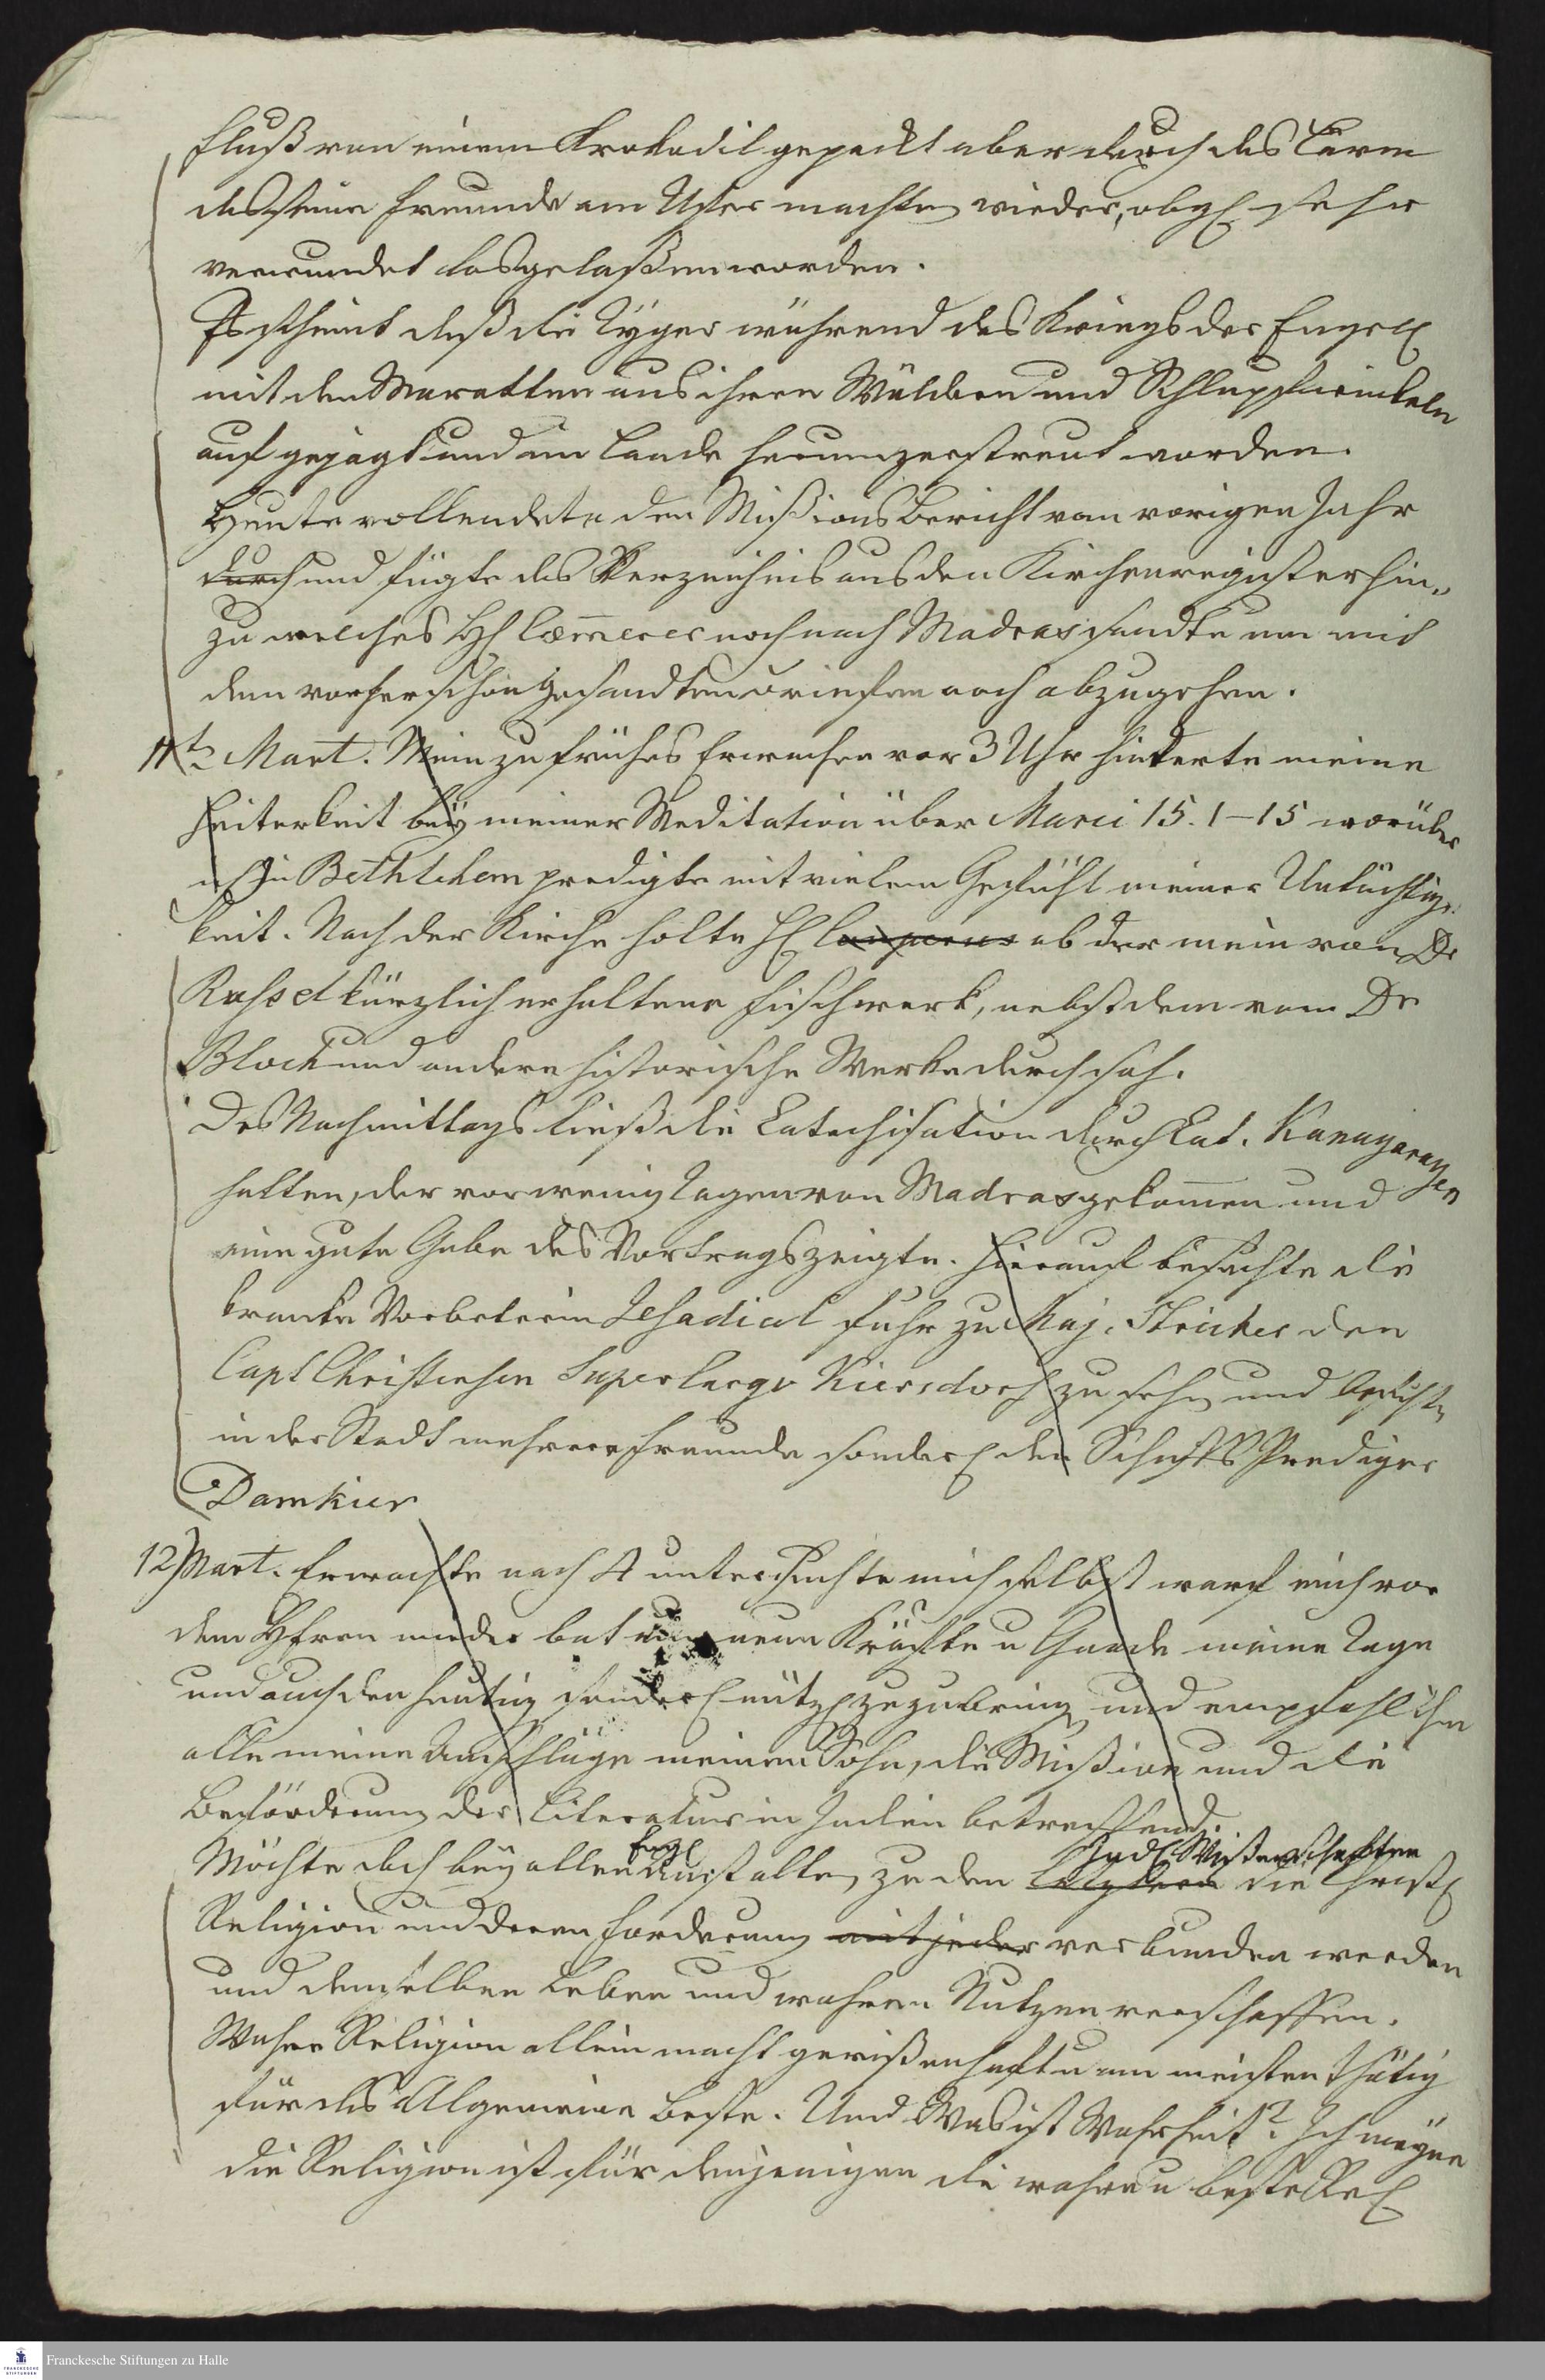 Fluß von einem Krokodil gepackt aber durch des Lärm
das seine Freunde am Ufer machten wieder, obgl sehr
verwundet losgelaßen worden.
Es scheint daß die Tyger während des Kriegs der Engell
mit den Maratten aus ihren Wäldern und Schlupfwinkeln
aufgejagt und im Lande herum zerstreut worden.
Heute vollendete den Mißions Bericht vom vorigen Jahr
durch und fügte das Verzeichnis aus den Kirchenregister hin„
zu welches H Cæm̄erer noch nach Madras sandte um mit
den vorher schon gesandten Briefen noch abzugehen.
11t Mart. Mein zu frühes Erwachen vor 3 Uhr hinderte meine
Heiterkeit bey meiner Meditation über Marci 15. 1-15 worüber
ich in Bethlehem predigte mit vielem Gefühl meiner Untüchtig„
keit. Nach der Kirche holte H ab der mein von Dr
Russel kürzlich erhaltene Fischwerk, nebst dem vom Dr
Bloch und andere historische Werke durchsah.
Des Nachmittags ließ die Catechisation durch Cat. Kanagarayen
halten, der vor wenig Tagen von Madras gekom̄en und
eine gute Gabe des Vortrags zeigte. Hierauf besuchte die
krancke Vorbeterin Jesadial fuhr zu Maj. Stricker den
Capt Christensen Supercargo Kiersdorf zu sehn und besuchte
in der Stadt mehrere Freunde sonderl den Schiffs Prediger
Damkier
12 Mart. Erwachte nach 4 untersuchte mich selbst warf mich vor
dem Herrn nieder bat um neue Kräfte u Gnade meine Tage
und auch den heutig sonderl nützl zuzubring und empfahl ihm
alle meine Anschläge meinen Sohn, die Mißion und die
Beförderung der Literatur in Indien betreffend.
Engl Ind Wißenschaften
Möchte doch bey allen Anstalten zu den letztern die Christl
Religion und deren Forderung mit jeder verbunden werden
und denselben Leben und wahren Nutzen verschaffen.
Wahre Religion allein macht gewißenhaft u am meisten thätig
für das Algemeine Beste. Und Was ist Wahrheit? Ich meyne
die Religion ist für denjenigen die wahre u beste
Franckesche Stiftungen zu Halle
FRANCKESCHE
STIFTUNGEN